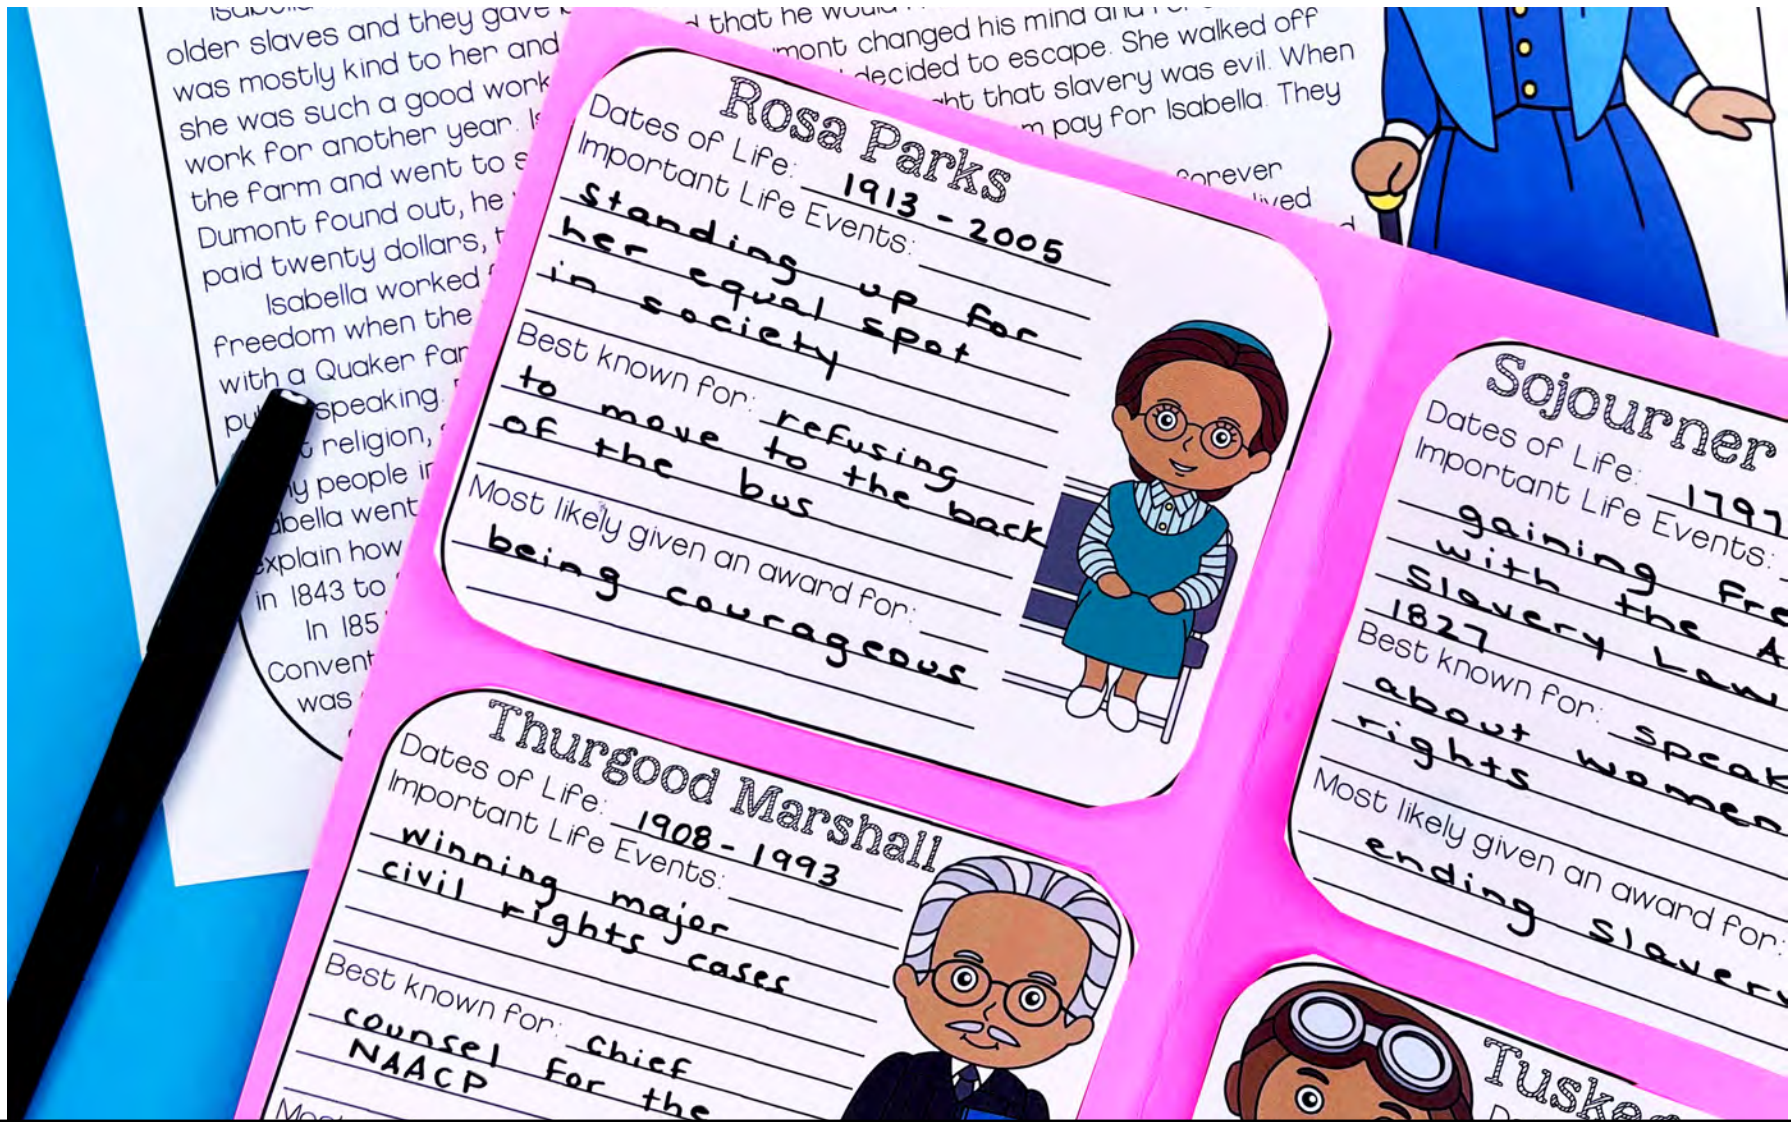 older slaves and they gave
was mostly kind to her and
she was such a good work
work for another year.
the farm and went to s
Dumont found out, he
paid twenty dollars,
Isabella worked
freedom when the
with a Quaker
speaking.
religion,
people in
abella went
explain how
in 1843 to
In 185
Convent
was
that he would
mont changed his mind and
decided to escape. She walked off
that slavery was evil. When
pay for Isabella. They
forever
Rosa Parks
Dates of Life: 1913 - 2005
Important Life Events:
standing up for
her equal spot
in society
Best known for: refusing
to move to the back
of the bus
Most likely given an award for:
being courageous
Thurgood Marshall
Dates of Life: 1908 - 1993
Important Life Events:
winning major
civil rights cases
Best known for: chief
counsel for the
NAACP
Most
Sojourner
Dates of Life: 1797
Important Life Events:
gaining Fre
with the A
Slavery Law
1827
Best known for: speak
about women
rights
Most likely given an award for:
ending slavery
Tuske